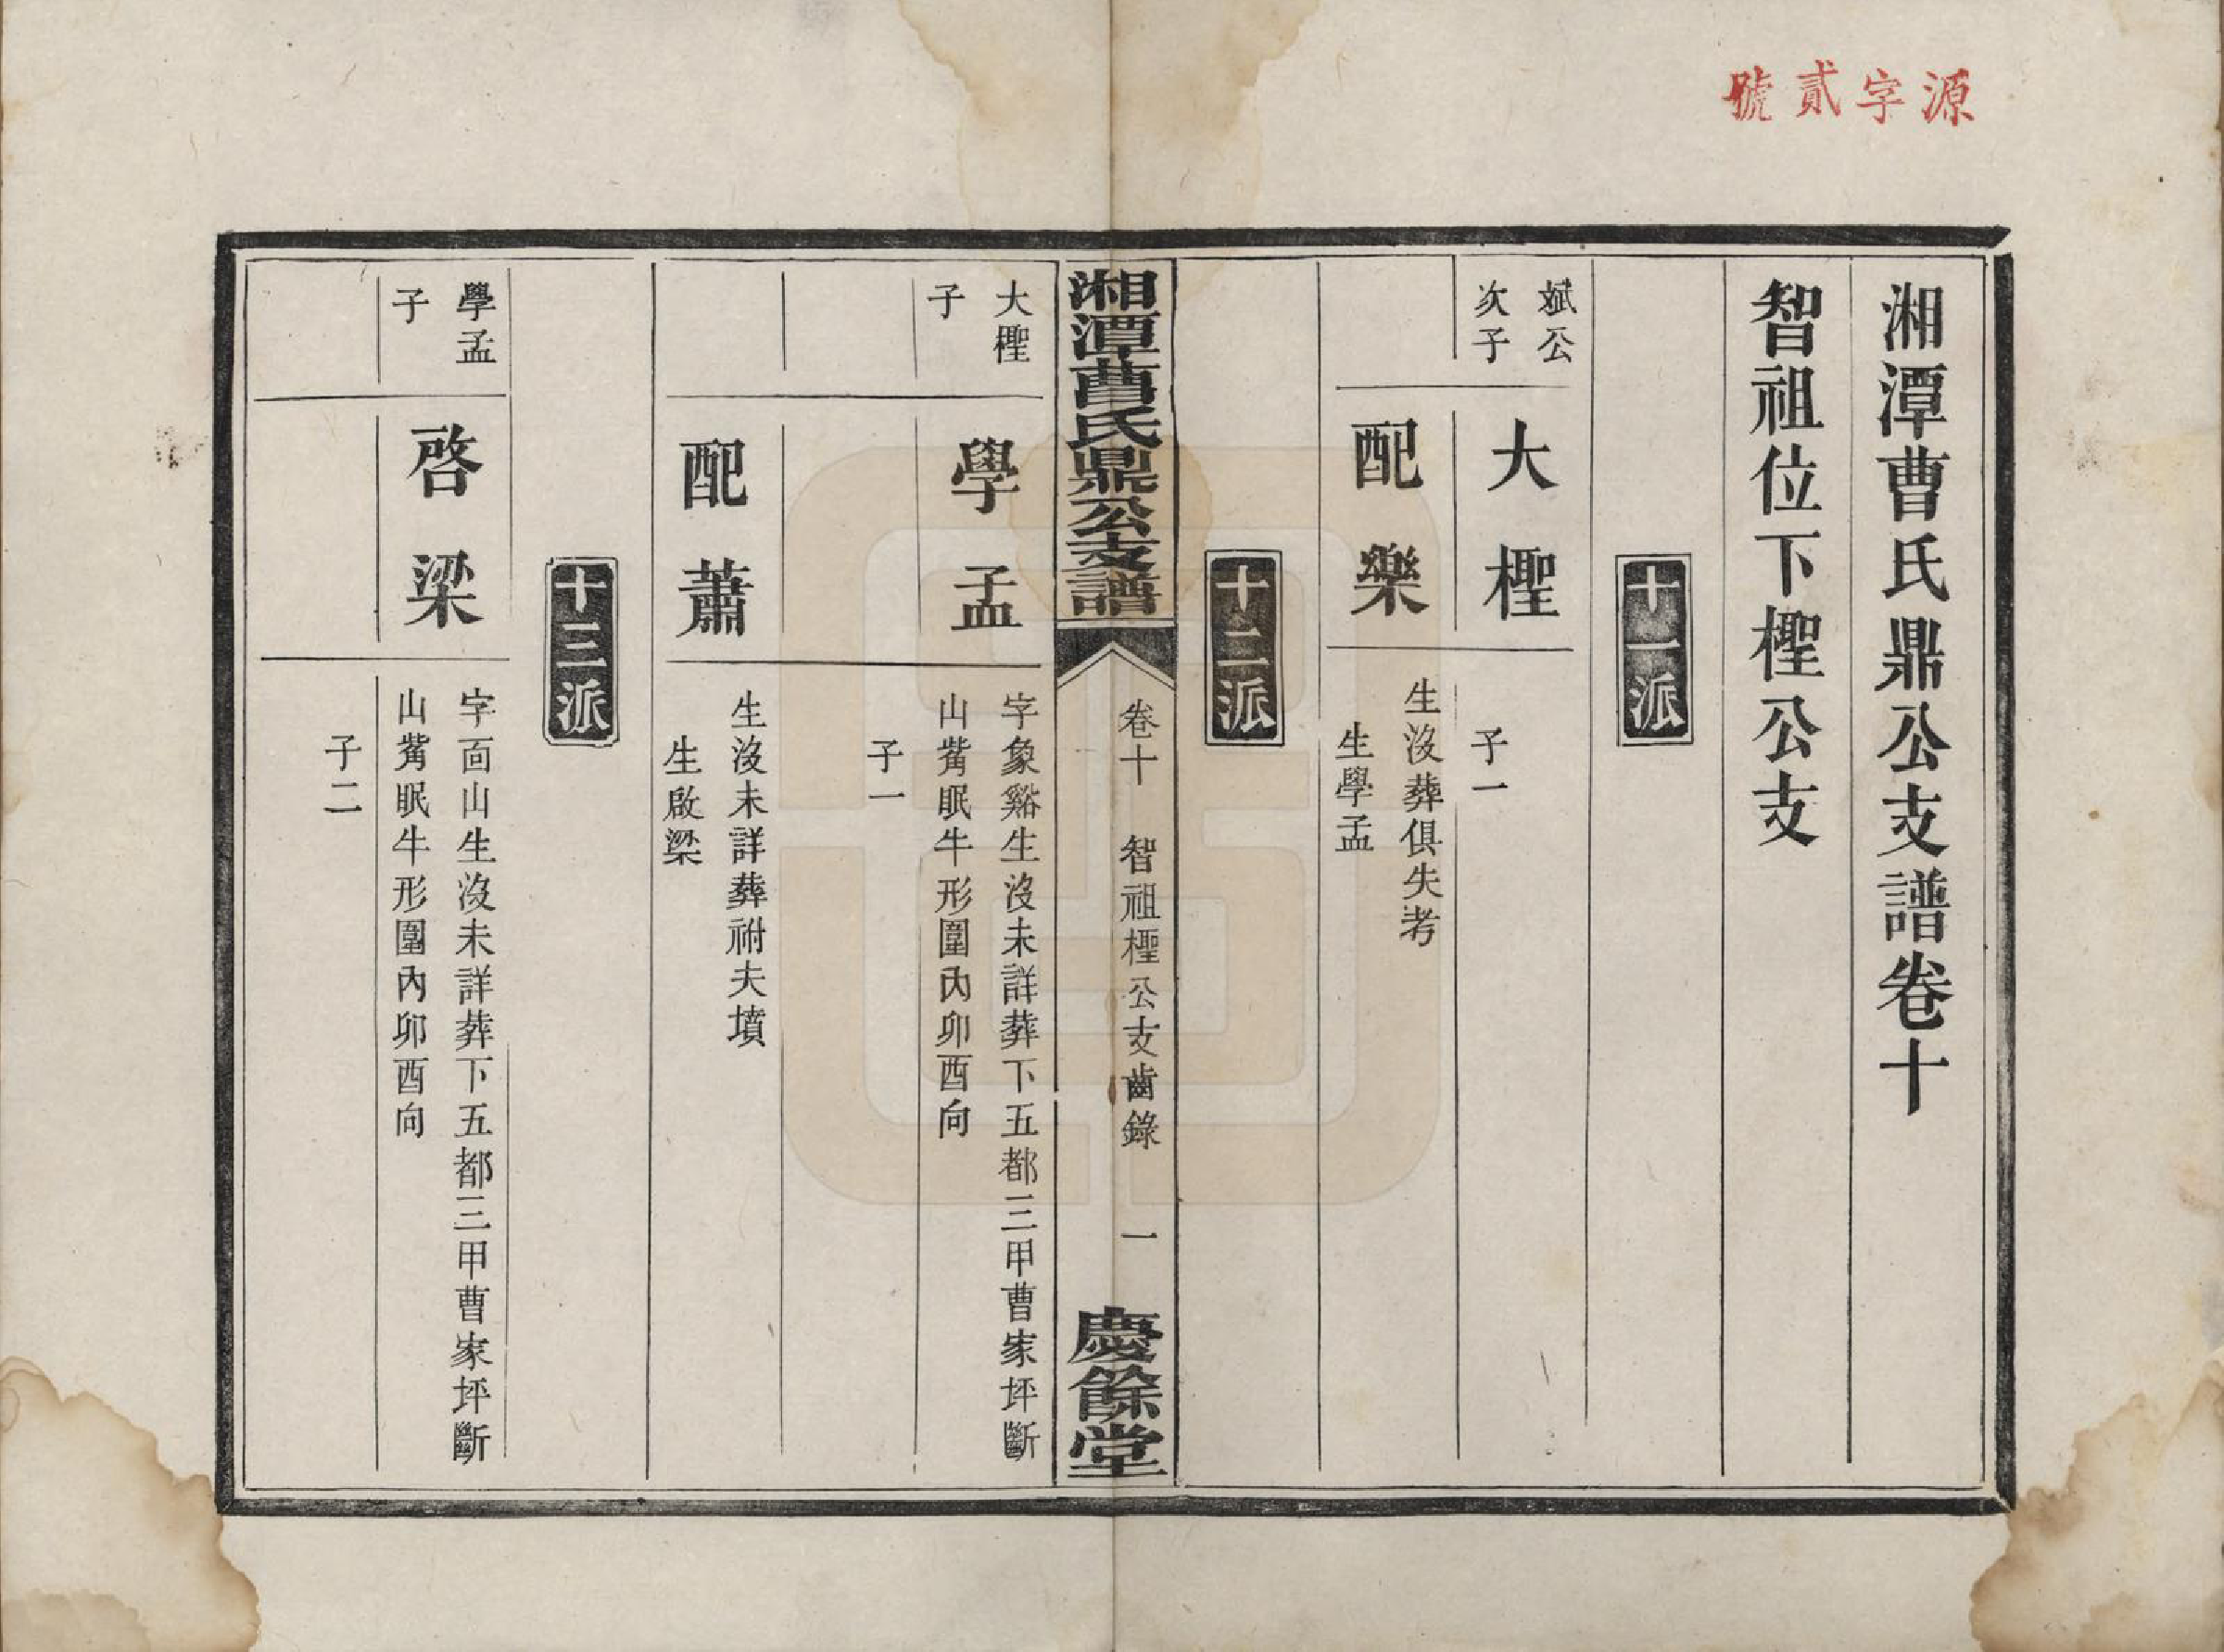 源字貳號
湘潭曹氏鼎公支譜卷十
智祖位下檉公支
十一派
斌公
次子
大檉
子一
配樂
生沒葬俱失考
生學孟
十二派
湘潭曹氏鼎公支譜
卷十 智祖檉公支齒錄 一
慶餘堂
大檉
子
學孟
字象谿生沒未詳葬下五都三甲曹家坪斷
山觜眠牛形圍內卯酉向
子一
配蕭
生沒未詳葬祔夫墳
生啟梁
十三派
學孟
子
啓梁
字面山生沒未詳葬下五都三甲曹家坪斷
山觜眠牛形圍內卯酉向
子二